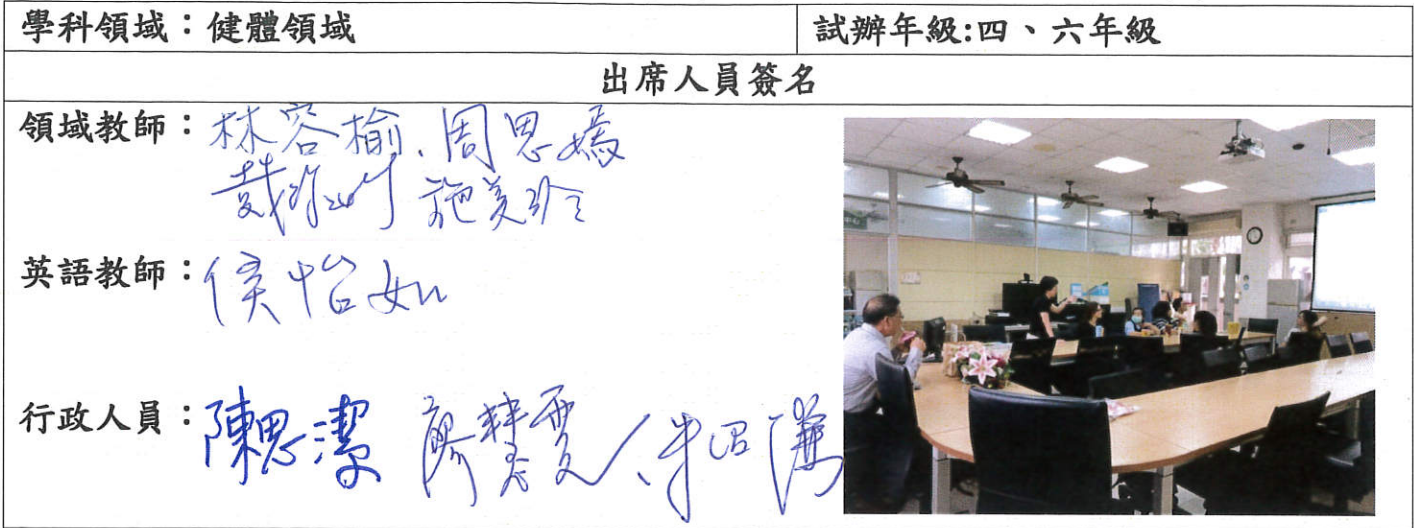 學科領域：健體領域
試辦年級:四、六年級
出席人員簽名
領域教師：林容榆、周思嫣
施美玲
英語教師：侯怡如
行政人員：陳思潔 廖慧雯